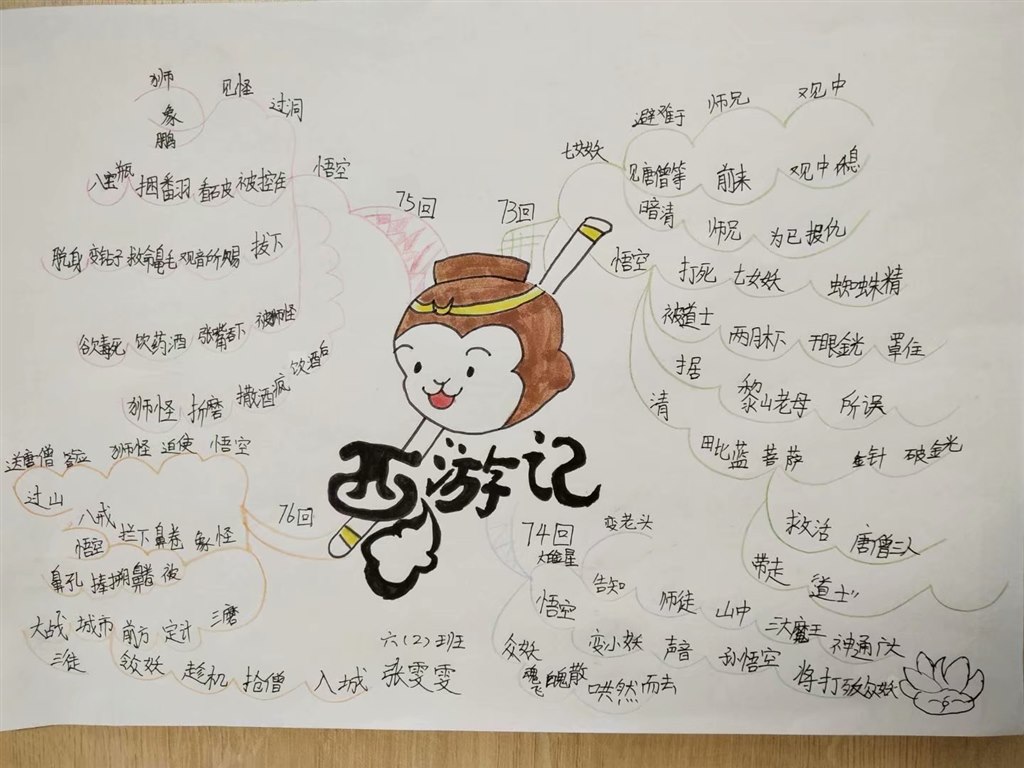 西游记
73回
七女妖
避难于 师兄 观中
见唐僧等 前来 观中 稍息
暗清 师兄 为已 报仇
悟空
打死 七女妖 蜘蛛精
被道士 两月木下 开眼金光 罩住
据 黎山老母 所误
清 毗蓝 菩萨 金针 破金光
救活 唐僧三人
带走 道士
74回
太金星 变老头
告知 师徒 山中 三大魔王 神通广大
悟空
变小妖 声音 孙悟空 将打死众妖
众妖 魂飞魄散 哄然而去
75回
悟空
过洞 见怪 狮 象 鹏
被拉住 看石皮 捆翻 入宝瓶
披下 观音所赐 救命毫毛 变钻子 脱身
被狮怪 张嘴吞下 饮药酒 欲毒死
饮酒后 撒酒疯 折磨 狮怪
76回
悟空 迫使 狮怪 答应 送唐僧
过山
八戒
象怪 鼻卷 拦下 悟空
被 捧捌 鼻孔
三磨 定计 前方 城市 大战 三徒
众妖 趁机 抢僧 入城
六(2)班
张雯雯